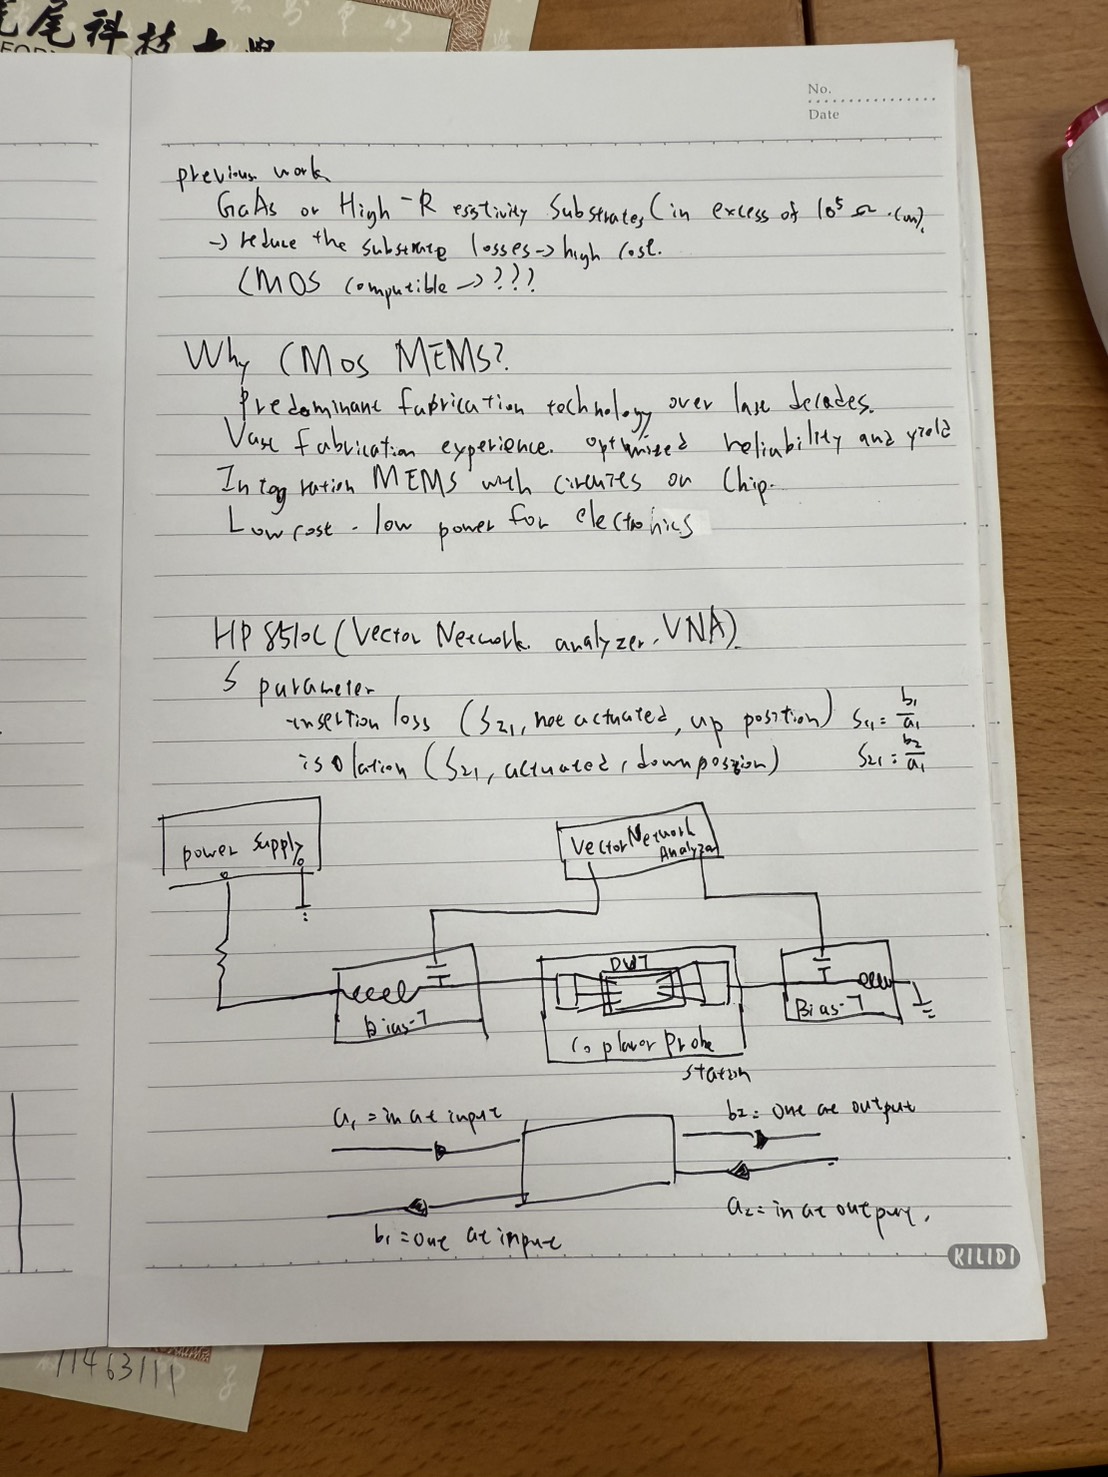 尾科技大學
No.
Date
previous work
GaAs or High-Resistivity Substrates (in excess of 10⁵ Ω·cm).
→ reduce the substrate losses → high cost.
CMOS computible → ???
Why CMOS MEMS?
Predominant fabrication technology over last decades.
Vast fabrication experience. optimized reliability and yield
Integration MEMS with circuits on Chip.
Low cost - low power for electronics
HP 8510C (Vector Network analyzer. VNA)
S parameter
insertion loss (S21, not actuated, up position) S11 = b1/a1
isolation (S21, actuated, down position) S21 = b2/a1
power supply
Vector Network
Analyzer
DUT
Bias-T
Bias-T
Coplanar Probe
Station
a1 = in at input
b2 = out at output
a2 = in at output.
b1 = out at input
KILIDI
11463111